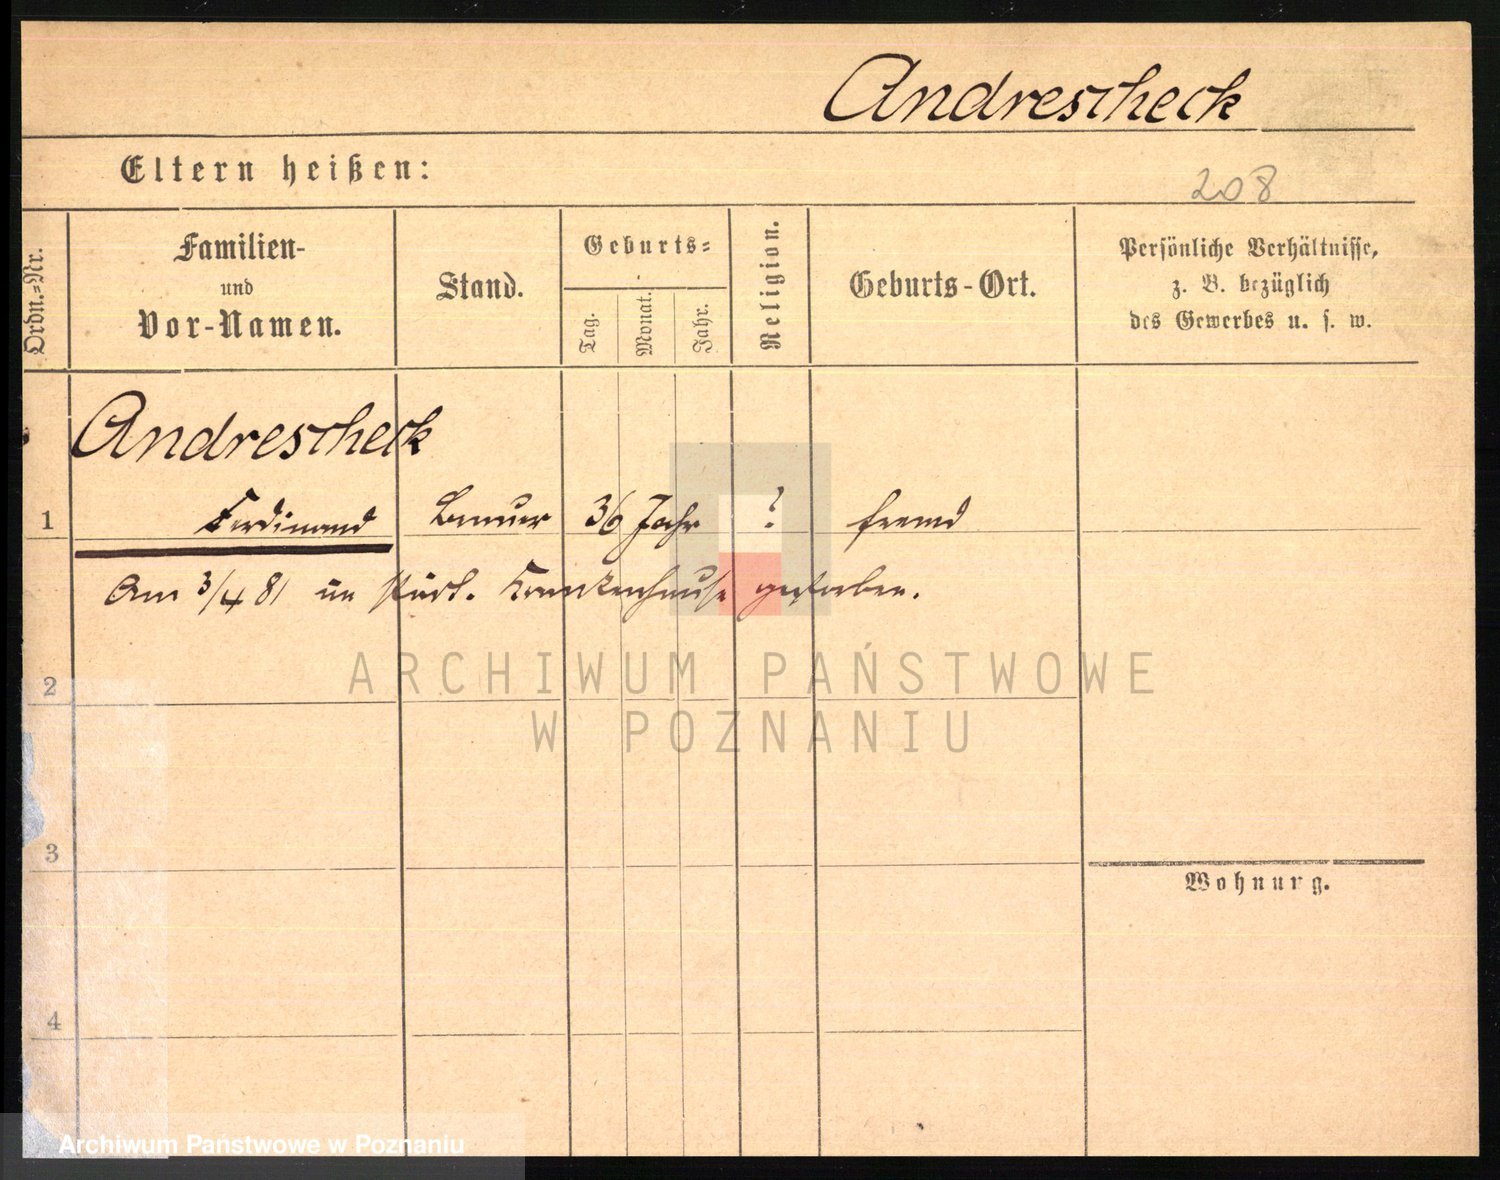 Andrescheck
Eltern heißen:
208
Ordn.-Nr.
Familien-
und
Vor-Namen.
Stand.
Geburts-
Tag.
Monat.
Jahr.
Religion.
Geburts-Ort.
Persönliche Verhältnisse,
z. B. bezüglich
des Gewerbes u. s. w.
Andrescheck
1 Ferdinand 36 Jahr ? fremd
Am 3/4 81 im städt. Krankenhause gestorben.
ARCHIWUM PAŃSTWOWE
W POZNANIU
2
3
Wohnung.
4
Archiwum Państwowe w Poznaniu